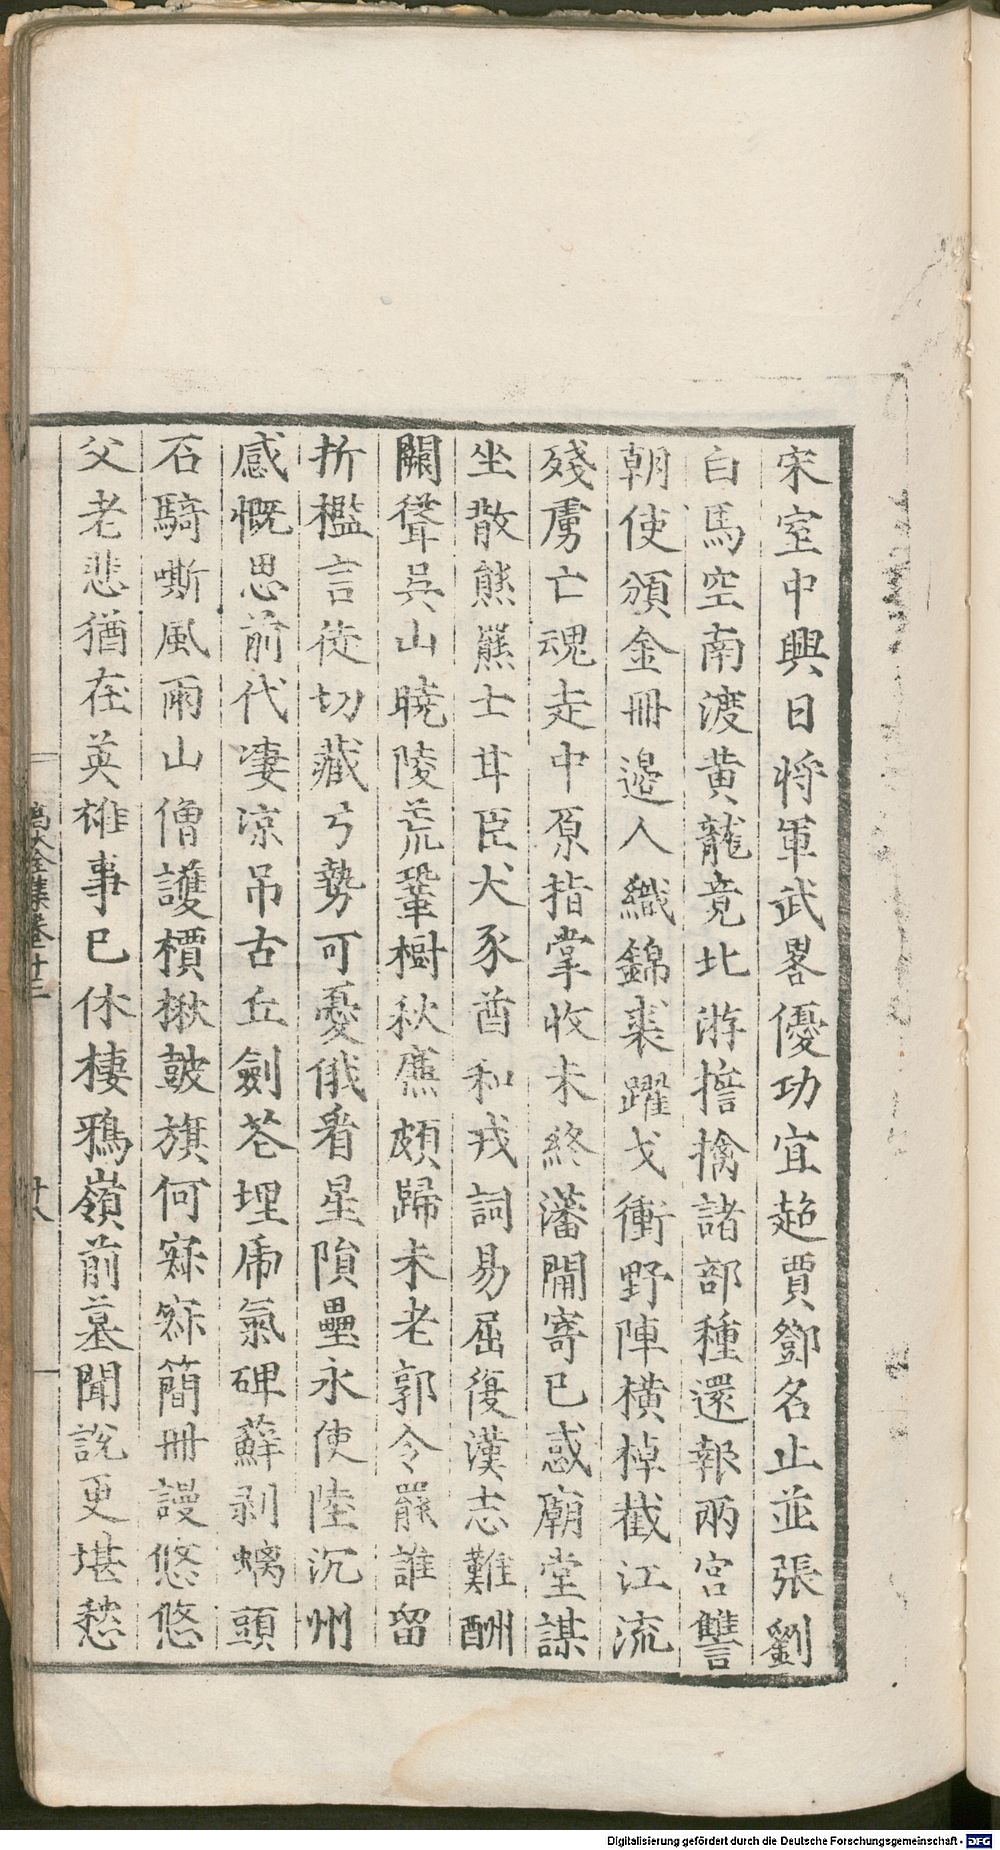 宋室中興日將軍武畧優功宜超賈鄧名止並張劉
白馬空南渡黄龍竟北游擔擒諸部種還報兩宫讐
朝使頒金冊邉人織錦裘躍戈衝野陣横棹截江流
殘虜亡魂走中原指掌收未終藩閫寄已惑廟堂謀
坐散熊羆士甘臣犬豕酋和戎詞易屈復漢志難酬
闕聳吳山曉陵荒鞏樹秋㢘頗歸未老郭令罷誰留
折檻言徒切藏弓勢可憂俄看星隕壘永使陸沉州
感慨思前代凄涼吊古丘劍花埋虎氣碑蘚剥螭頭
石騎嘶風雨山僧護檟楸鼓旗何寂寂簡冊謾悠悠
父老悲猶在英雄事已休棲鴉嶺前墓聞說更堪愁
高太史全集卷十三
十八
Digitalisierung gefördert durch die Deutsche Forschungsgemeinschaft - DFG